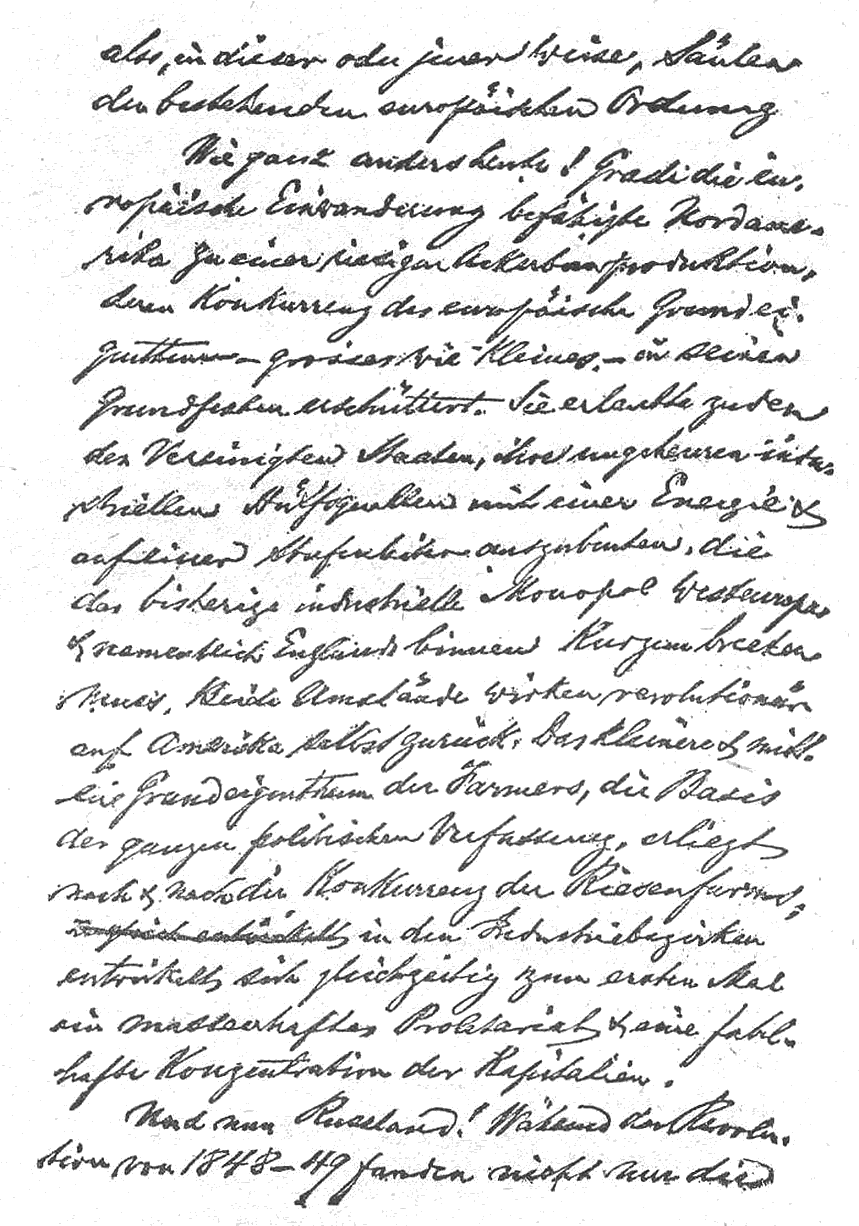 also, in dieser oder jener Weise, Säulen
der bestehenden europäischen Ordnung
Wie ganz anders heute! Grade die eu-
ropäische Einwanderung befähigte Nordame-
rika zu einer riesigen Ackerbauproduktion,
deren Konkurrenz das europäische Grundei-
genthum – grosses wie kleines – in seinen
Grundfesten erschüttert. Sie erlaubte zudem
den Vereinigten Staaten, ihre ungeheuren indu-
striellen Hülfsquellen mit einer Energie &
auf einer Stufenleiter auszubeuten, die
das bisherige industrielle Monopol Westeuropas
& namentlich Englands binnen Kurzem brechen
muss. Beide Umstände wirken revolutionär
auf Amerika selbst zurück. Das kleinere & mitt-
lere Grundeigenthum der Farmers, die Basis
der ganzen politischen Verfassung, erliegt
nach & nach der Konkurrenz der Riesenfarms,
in den Industriebezirken
entwickelt sich gleichzeitig zum ersten Mal
ein massenhaftes Proletariat & eine fabel-
hafte Konzentration der Kapitalien.
Und nun Russland! Während der Revolu-
tion von 1848–49 fanden nicht nur die